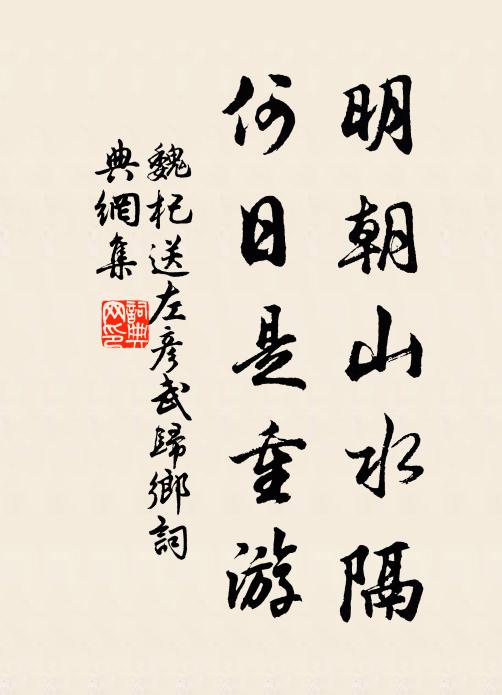 明朝山水隔
何日是重游
魏杞送左彦武歸鄉詞
典網集
詞典网印